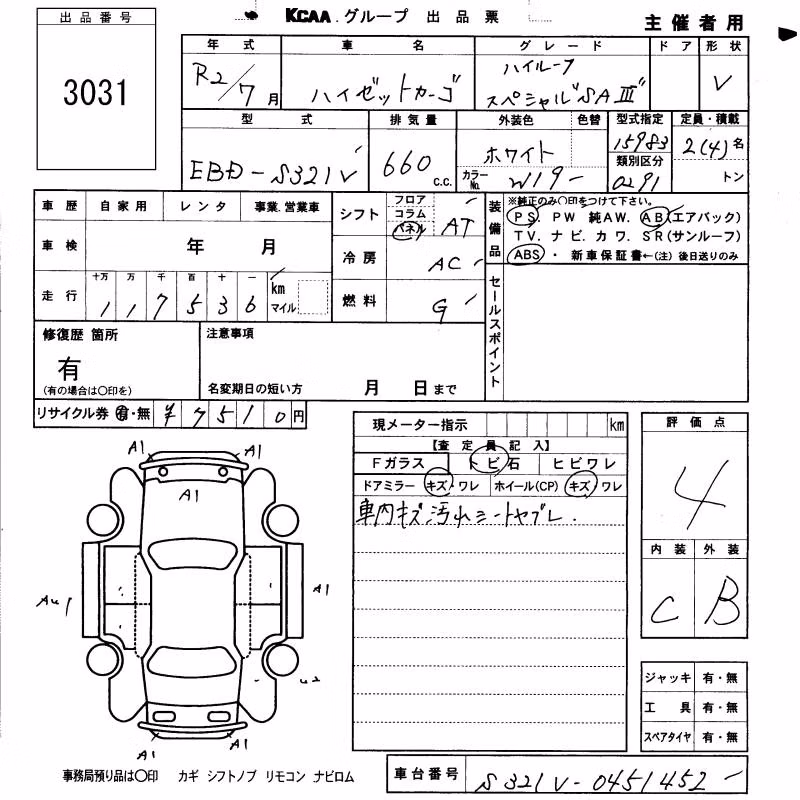 KCAA グループ 出品票
主催者用
出品番号
3031
年式 車名 グレード ドア 形状
R2/7月 ハイゼットカーゴ ハイルーフ スペシャル"SAⅢ" V
型式 排気量 外装色 色替 型式指定 定員・積載
EBD-S321V 660 c.c. ホワイト 15983 2(4)名
カラーNo. W19 類別区分 0291 トン
車歴 自家用 レンタ 事業.営業車
シフト フロア コラム パネル AT
装備品 ※純正のみ〇印をつけて下さい。
PS PW 純AW. AB(エアバック)
TV. ナビ. カワ. SR(サンルーフ)
ABS ・ 新車保証書←(注)後日送りのみ
車検 年 月
冷房 AC
走行 十万 万 千 百 十 一 km マイル
117536
燃料 G
セールスポイント
修復歴 箇所
有
(有の場合は〇印を)
注意事項
名変期日の短い方 月 日まで
リサイクル券 有・無 ¥7510円
現メーター指示 km
【査定員記入】
Fガラス トビ石 ヒビワレ
ドアミラー キズ・ワレ ホイール(CP) キズ・ワレ
車内キズ汚れシートヤブレ.
評価点
4
内装 外装
C B
A1 A1
A1
A1
A1 A1
ジャッキ 有・無
工具 有・無
スペアタイヤ 有・無
事務局預り品は〇印 カギ シフトノブ リモコン ナビロム
車台番号 S321V-0451452